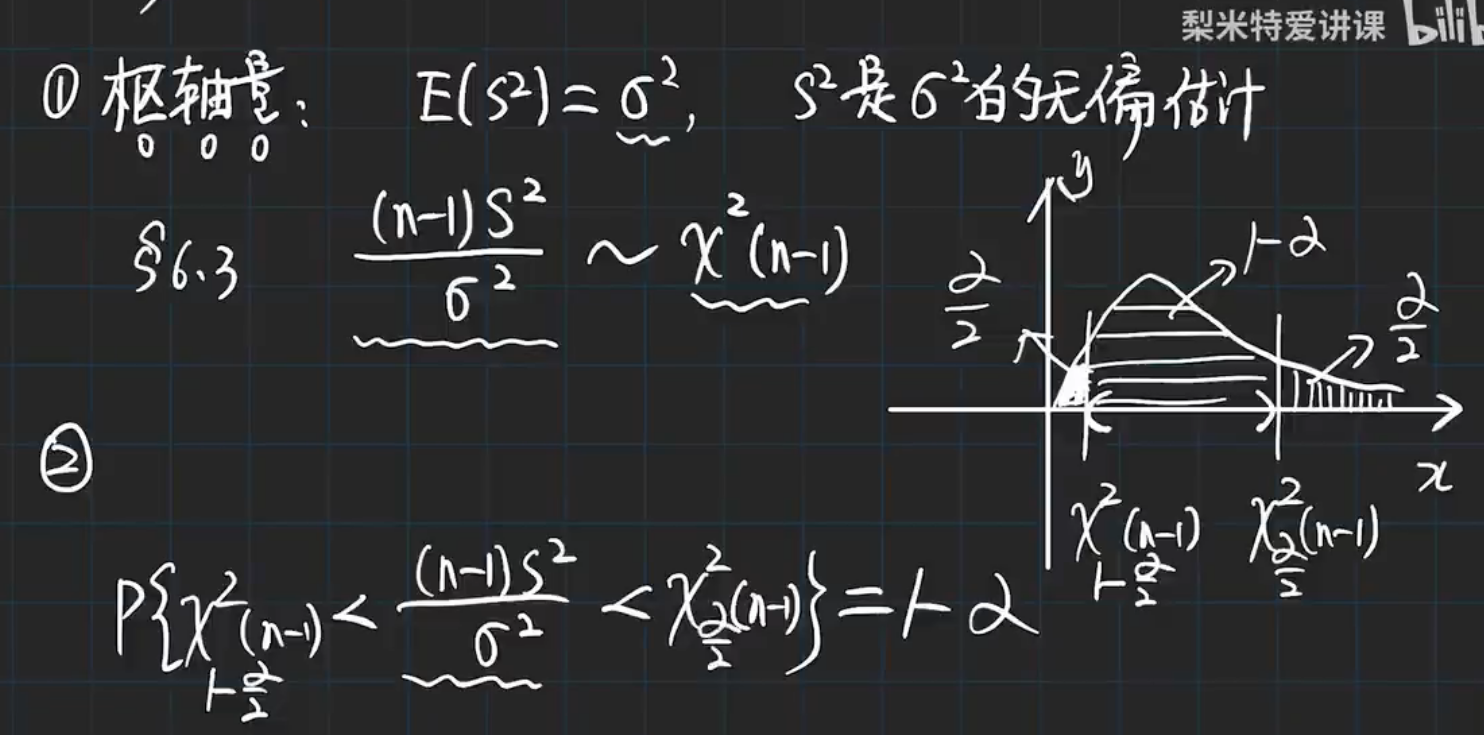 梨米特爱讲课 bilib
① 枢轴量: E(S²)=σ², S²是σ²的无偏估计
§6.3 (n-1)S²/σ² ~ χ²(n-1)
y
1-α
α/2
α/2
x
χ²_{1-α/2}(n-1) χ²_{α/2}(n-1)
②
P{χ²_{1-α/2}(n-1) < (n-1)S²/σ² < χ²_{α/2}(n-1)} = 1-α